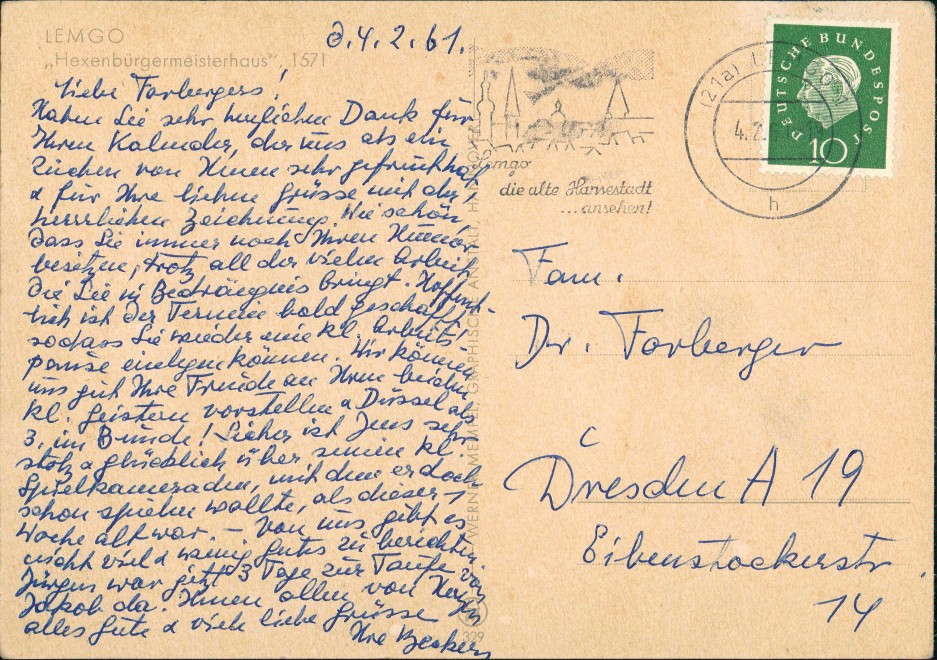 LEMGO
„Hexenbürgermeisterhaus", 1571
d. 4.2.61.
Liebe Forbergers!
Haben Sie sehr herzlichen Dank für
Ihren Kalender, der uns als ein
Zeichen von Ihnen sehr gefreut hat
& für Ihre lieben Grüsse mit der
herrlichen Zeichnung. Wie schön,
dass Sie immer noch Ihren Humor
besitzen, trotz all der vielen Arbeit,
die Sie in Bedrängnis bringt. Hoffent-
lich ist der Termin bald geschafft,
sodass Sie wieder eine kl. Arbeits-
pause einlegen können. Wir können
uns gut Ihre Freude an Ihren beiden
kl. Geistern vorstellen & Düssel als
3. im Bunde! Sicher ist Jens sehr
stolz & glücklich über seinen kl.
Spielkameraden, mit dem er doch
schon spielen wollte, als dieser 1
Woche alt war. – Von uns gibt es
nicht viel & wenig Gutes zu berichten.
Jürgen war jetzt 3 Tage zur Taufe von
Jakob da. Ihnen allen von Herzen
alles Gute & viele liebe Grüsse
Ihre Beckers
WERNER MEMPEL, GRAPHISCHE ANSTALT,
329
Lemgo
die alte Hansestadt
...ansehen!
(21a) LEMGO
4.2.
h
DEUTSCHE BUNDESPOST
10
Fam.
Dr. Forberger
Dresden A 19
Eibenstockerstr.
14